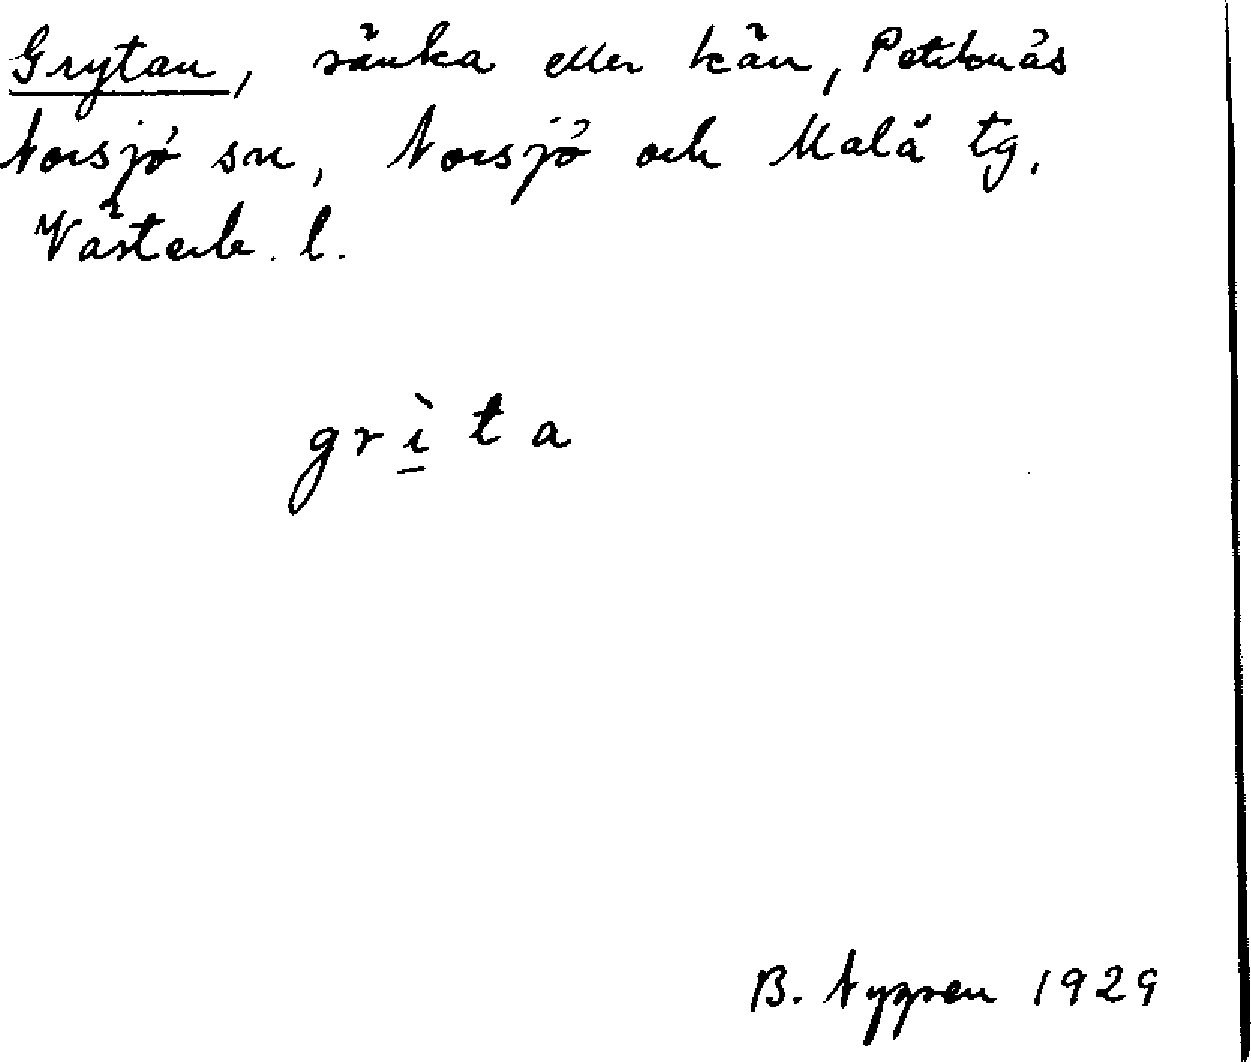 Grytan, sänka eller kän, Petiknäs
Norsjö sn, Norsjö och Malå tg.
Västerb. l.
grìta
B. Nygren 1929